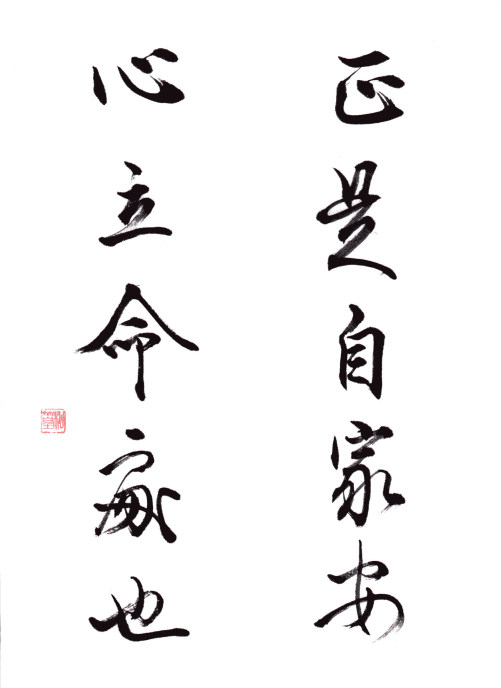 正是自家安
心立命處也